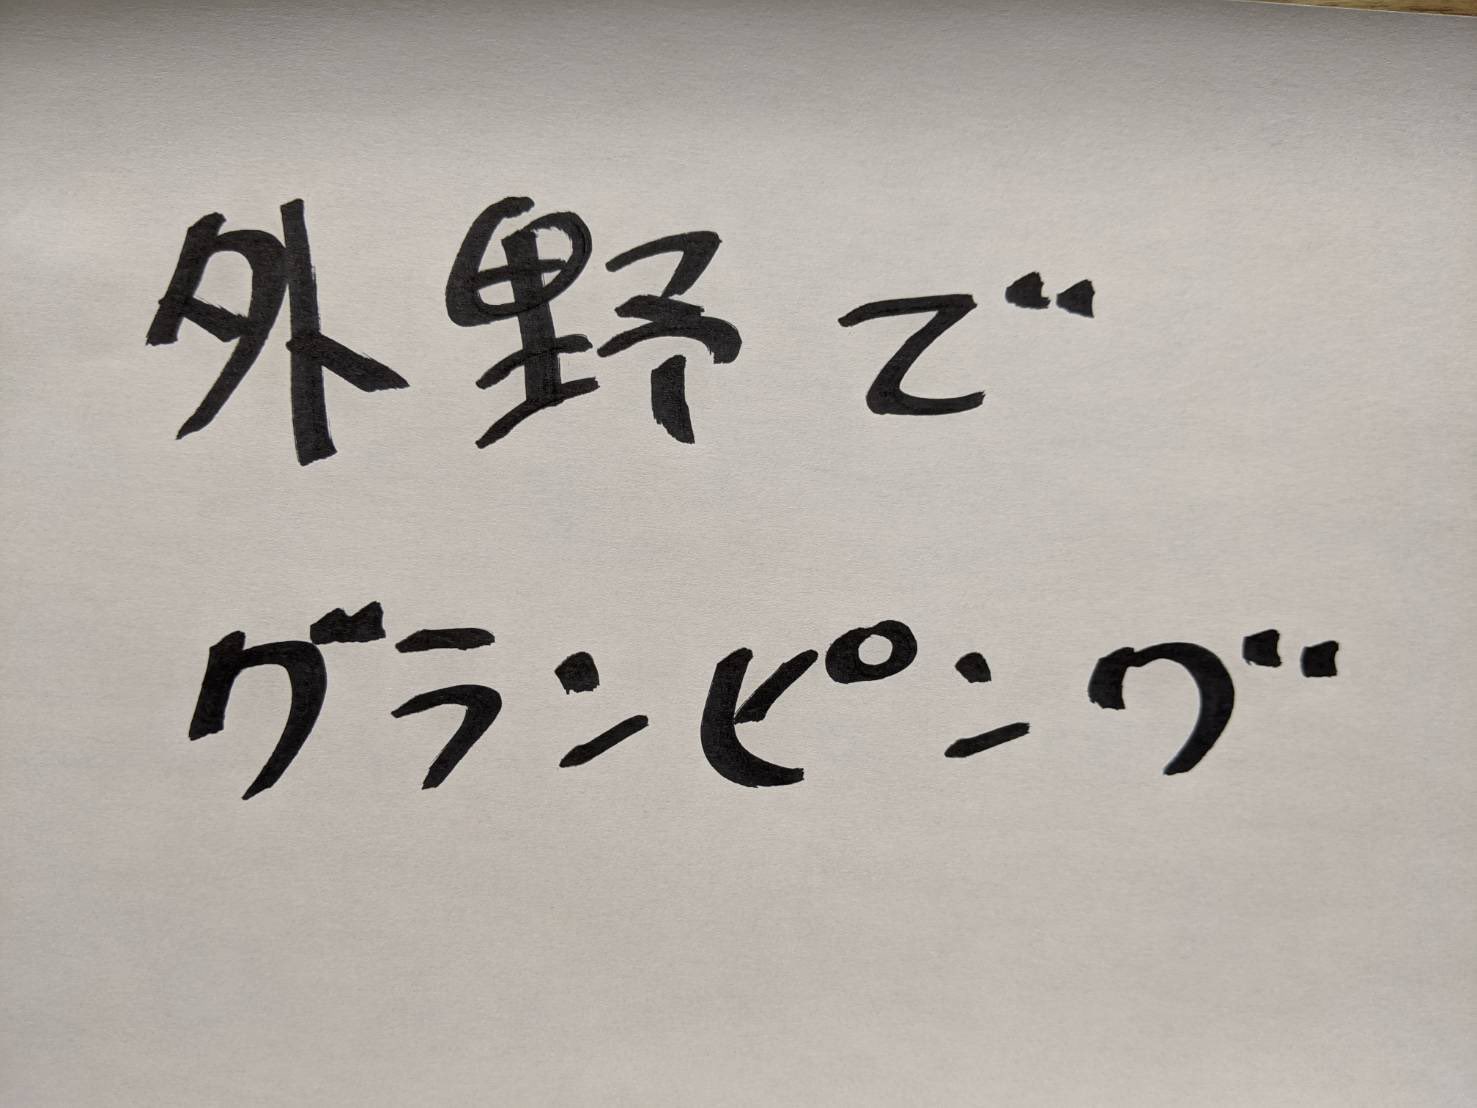 外野で
グランピング